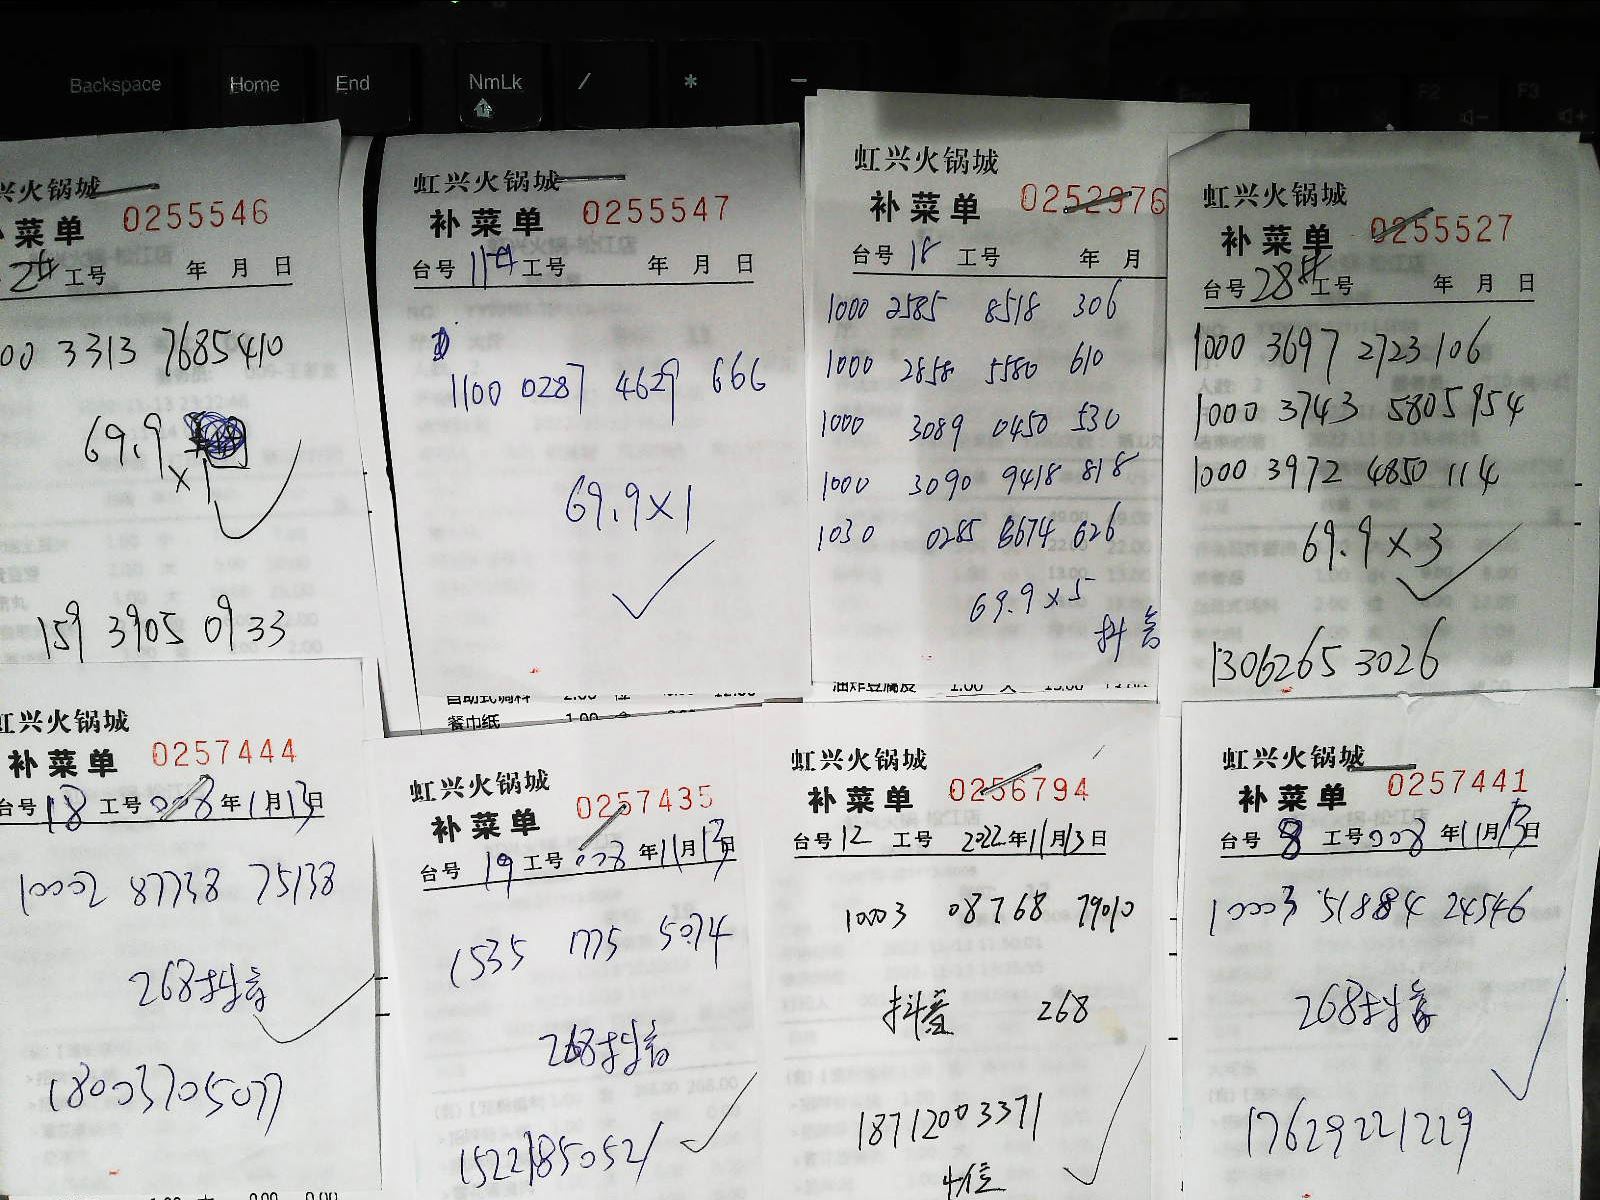 Backspace
Home
End
NmLk
/
*
-
F2
F3
兴火锅城
菜单 0255546
2# 工号 年 月 日
00 3313 7685410
69.9
×1
159 3905 0933
虹兴火锅城
补菜单 0255547
台号 11# 工号 年 月 日
1100 0287 4629 666
69.9×1
自助式调料 2.00 位 12.00
餐巾纸 1.00
虹兴火锅城
补菜单 0252976
台号 18 工号 年 月
1000 2585 8518 306
1000 2858 5580 610
1000 3089 0450 530
1000 3090 9418 818
1030 0285 6674 626
69.9×5
抖音
油炸豆腐皮 1.00
虹兴火锅城
补菜单 0255527
台号 28# 工号 年 月 日
1000 3697 2723 106
1000 3743 5805954
1000 3972 4850 114
69.9×3
13062653026
虹兴火锅城
补菜单 0257444
台号 18 工号 008 年 1月13日
10002 87738 75138
268抖音
18003705077
虹兴火锅城
补菜单 0257435
台号 19 工号 008 年11月13日
1535 1775 5074
268抖音
15221850521
虹兴火锅城
补菜单 0256794
台号 12 工号 2022年11月13日
10003 08768 79010
抖音 268
18712003371
4位
虹兴火锅城
补菜单 0257441
台号 8 工号 008 年11月13日
10003 51884 24546
268抖音
17629221229